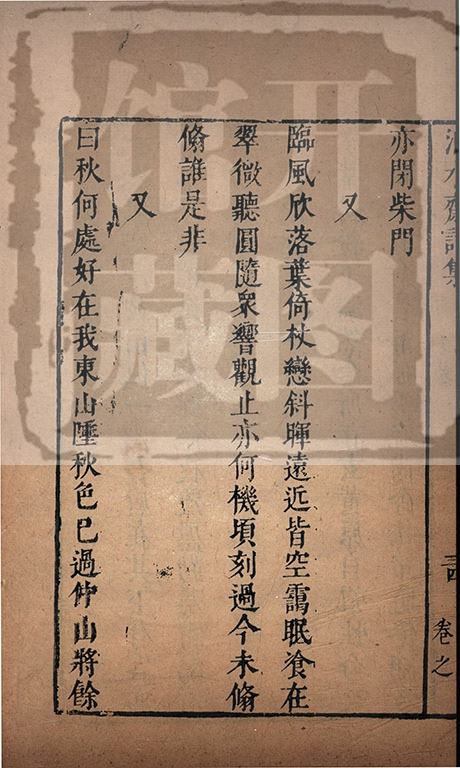 水齋詩集
卷之
亦閉柴門
又
臨風欣落葉倚杖戀斜暉遠近皆空靄眠飡在
翠微聽圓隨衆響觀止亦何機頃刻過今未翛
翛誰是非
又
曰秋何處好在我東山陲秋色已過仲山將餘
开图
馆藏